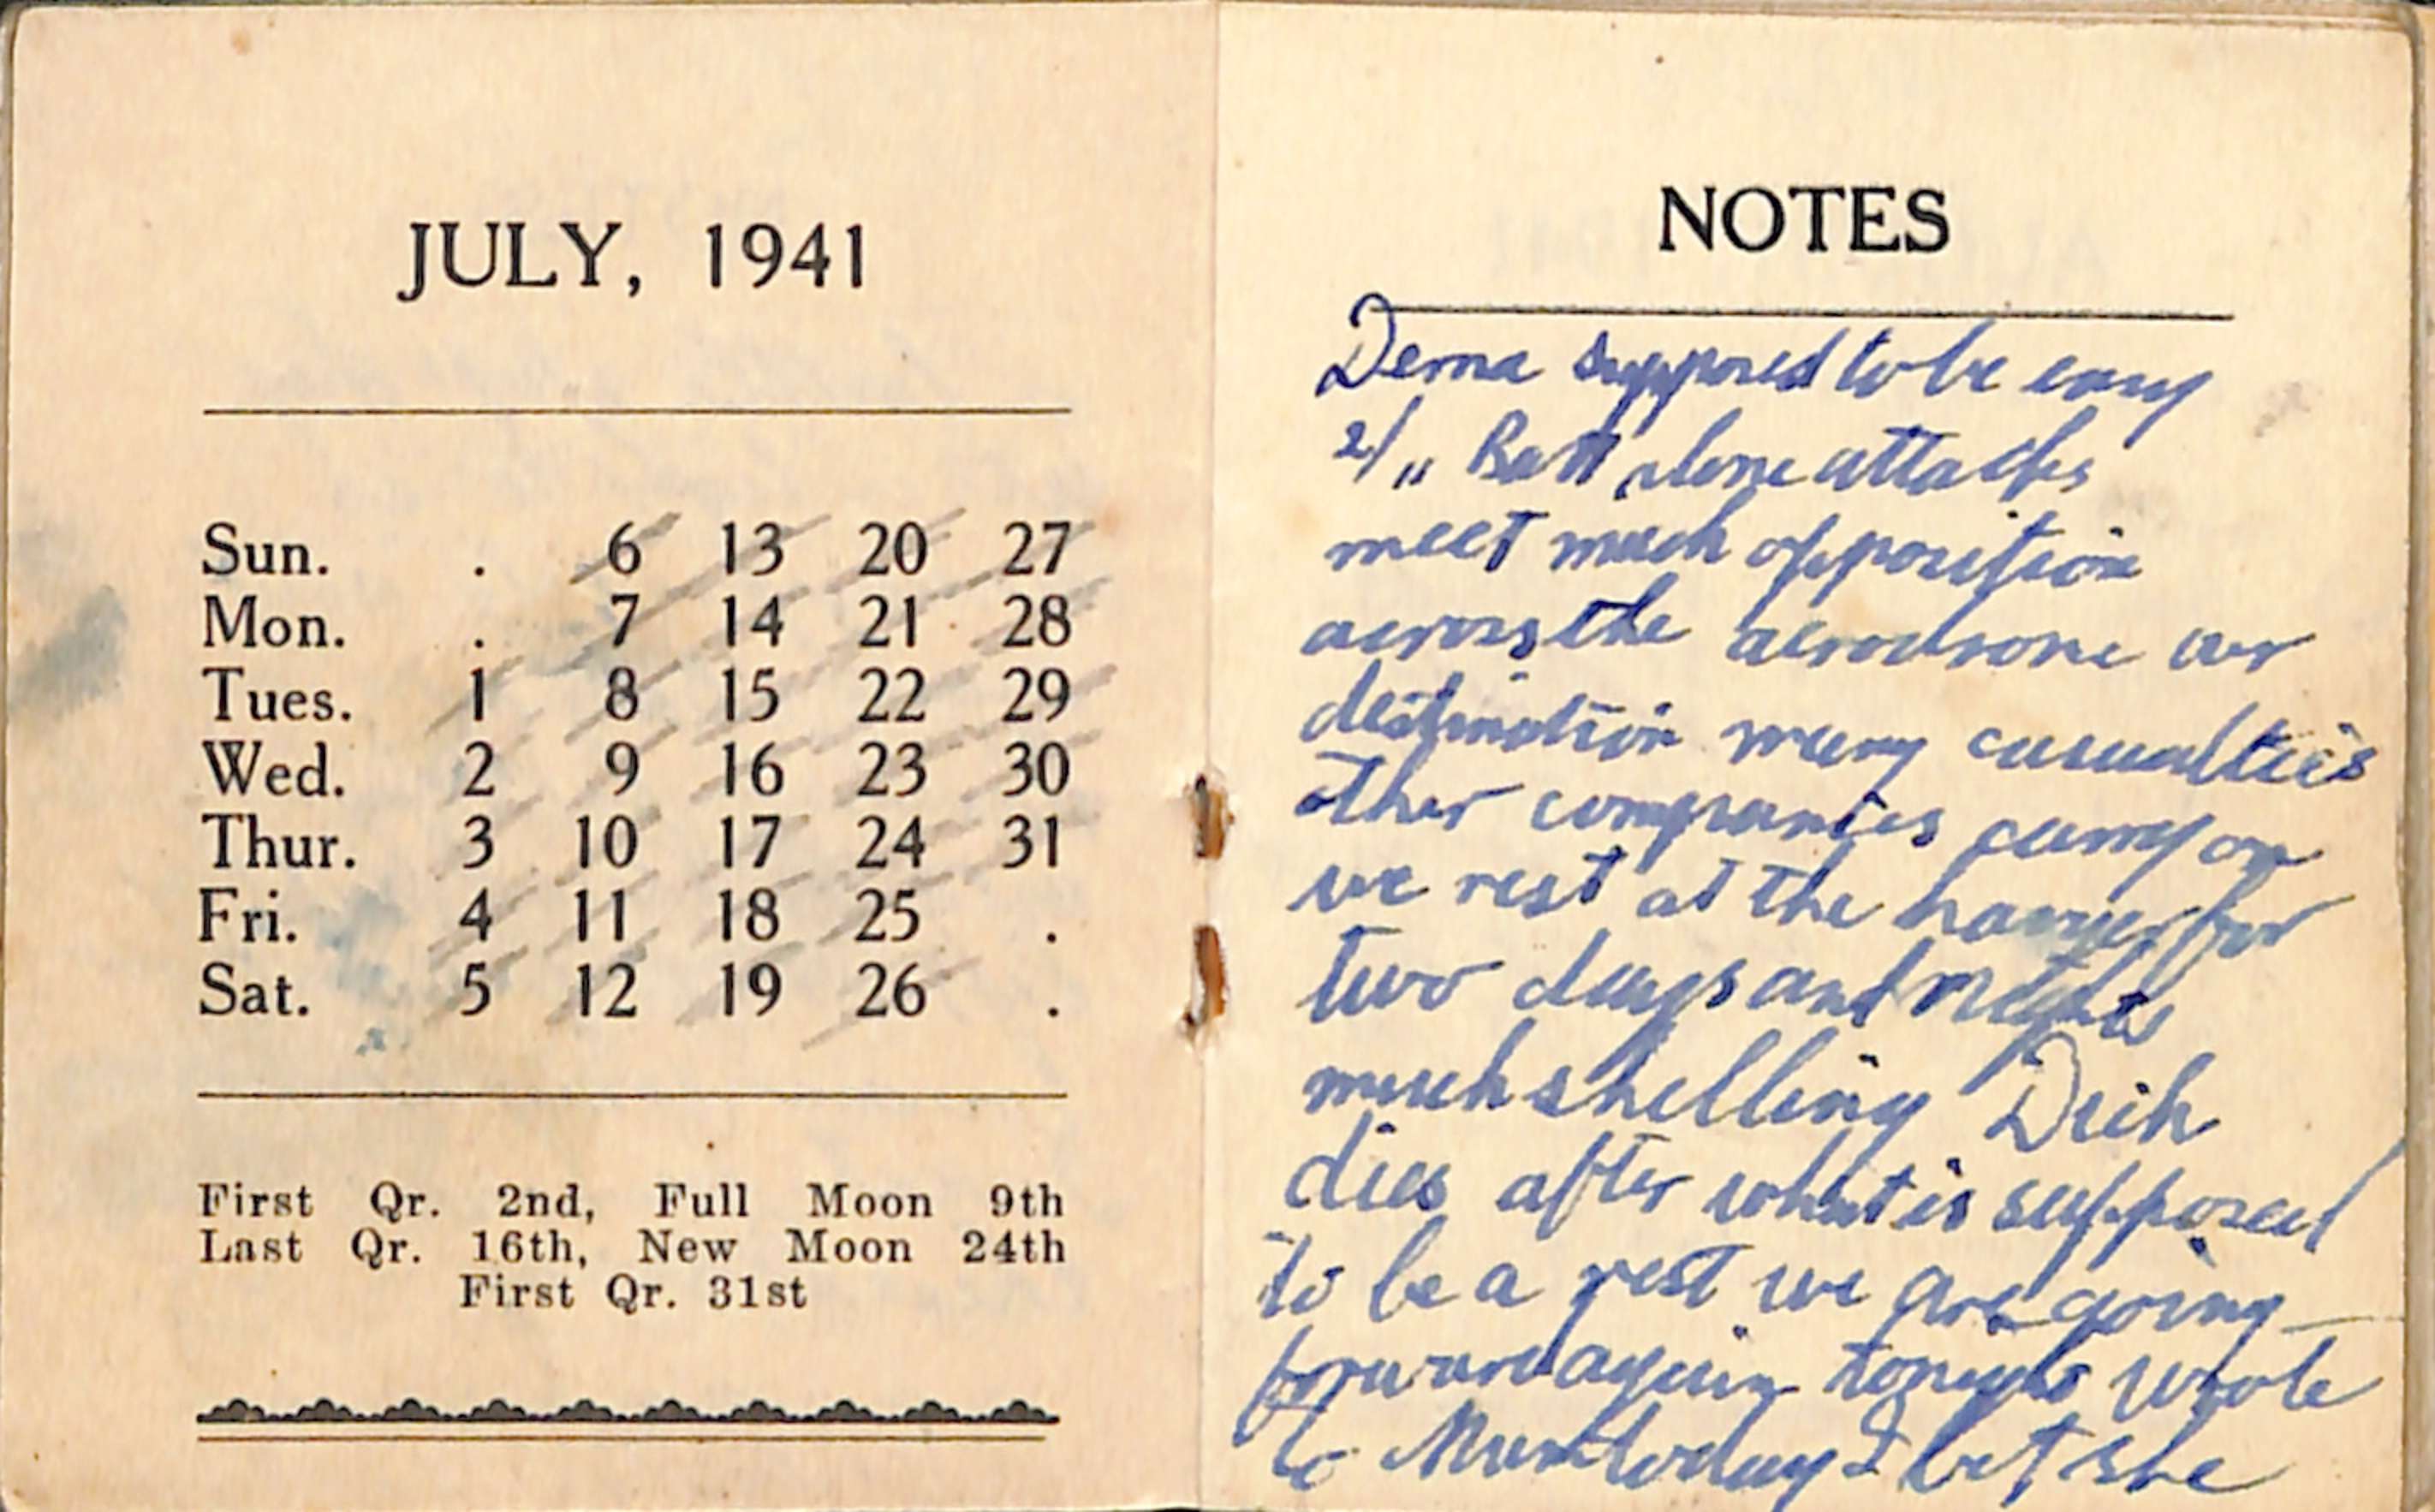 JULY, 1941
Sun. . 6 13 20 27
Mon. . 7 14 21 28
Tues. 1 8 15 22 29
Wed. 2 9 16 23 30
Thur. 3 10 17 24 31
Fri. 4 11 18 25 .
Sat. 5 12 19 26 .
First Qr. 2nd, Full Moon 9th
Last Qr. 16th, New Moon 24th
First Qr. 31st
NOTES
Derna supposed to be easy
2/11 Batt alone attacks
meet much opposition
across the aerodrome our
destination many casualties
other companies carry on
we rest at the hanger for
two days and nights
much shelling
dies after what is supposed
to be a rest we are going
forward again tonight wrote
to Mum today I bet she